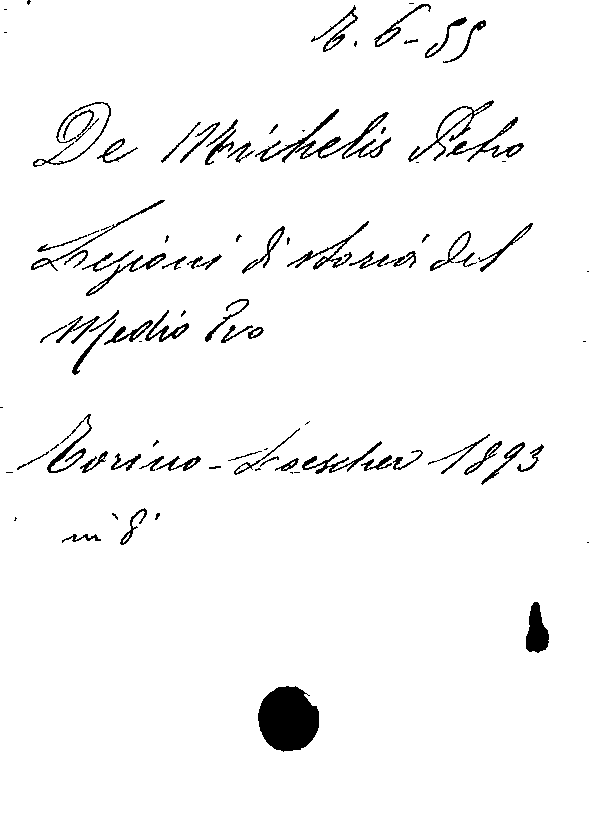 Z. 6-55
De Michelis Pietro
Lezioni di storia del
Medio Evo
Torino - Loescher 1893
in 8°